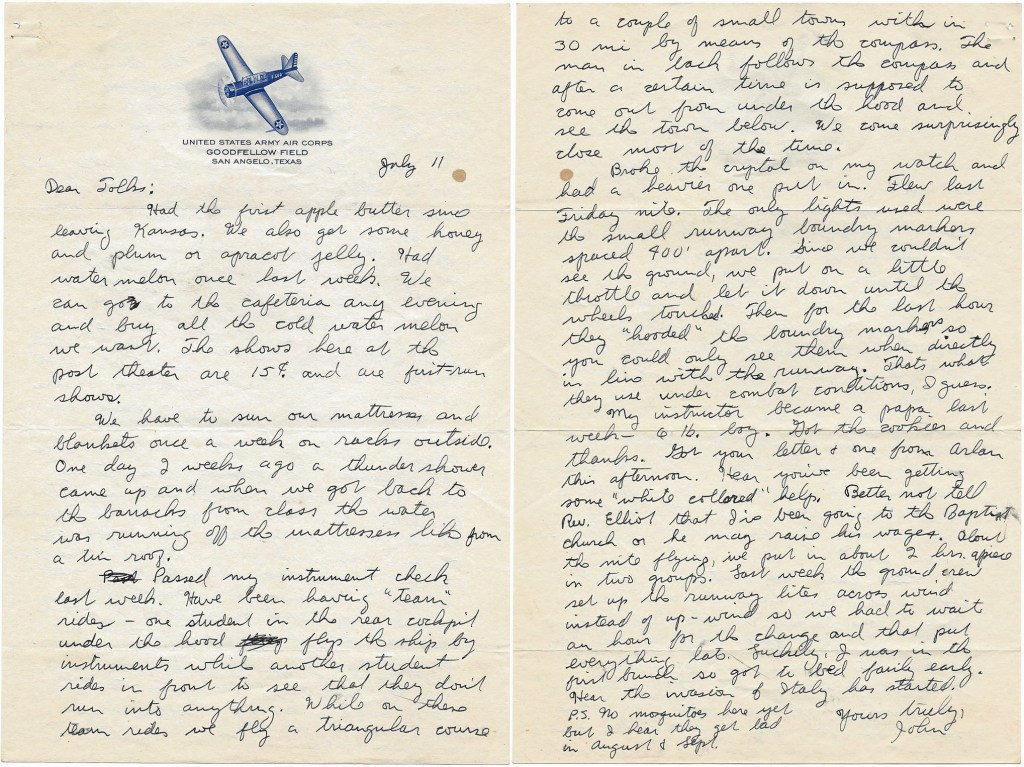 UNITED STATES ARMY AIR CORPS
GOODFELLOW FIELD
SAN ANGELO, TEXAS
July 11
Dear Folks:
Had the first apple butter since
leaving Kansas. We also get some honey
and plum or apracot jelly. Had
water melon once last week. We
can go to the cafeteria any evening
and buy all the cold water melon
we want. The shows here at the
post theater are 15¢ and are first-run
shows.
We have to sun our mattresses and
blankets once a week on racks outside.
One day 2 weeks ago a thunder shower
came up and when we got back to
the barracks from class the water
was running off the mattresses like from
a tin roof.
Passed my instrument check
last week. Have been having "team"
rides – one student in the rear cockpit
under the hood flys the ship by
instruments while another student
rides in front to see that they don't
run into anything. While on these
team rides we fly a triangular course
to a couple of small towns with in
30 mi by means of the compass. The
man in back follows the compass and
after a certain time is supposed to
come out from under the hood and
see the town below. We come surprisingly
close most of the time.
Broke the crystal on my watch and
had a heavier one put in. Flew last
Friday nite. The only lights used were
the small runway boundry markers
spaced 400' apart. Since we couldn't
see the ground, we put on a little
throttle and let it down until the
wheels touched. Then for the last hour
they "hooded" the boundry markers so
you could only see them when directly
in line with the runway. Thats what
they use under combat conditions, I guess.
My instructor became a papa last
week – 6 lb. boy. Got the cookies and
thanks. Got your letter & one from Arlan
this afternoon. Hear you've been getting
some "white collared" help. Better not tell
Rev. Elliot that I've been going to the Baptist
church or he may raise his wages. About
the nite flying, we put in about 2 hrs. apiece
in two groups. Last week the ground crew
set up the runway lites across wind
instead of up-wind so we had to wait
an hour for the change and that put
everything late. Luckily, I was in the
first bunch so got to bed fairly early.
Hear the invasion of Italy has started.
Yours truly,
John
P.S. No mosquitoes here yet
but I hear they get bad
in August & Sept.